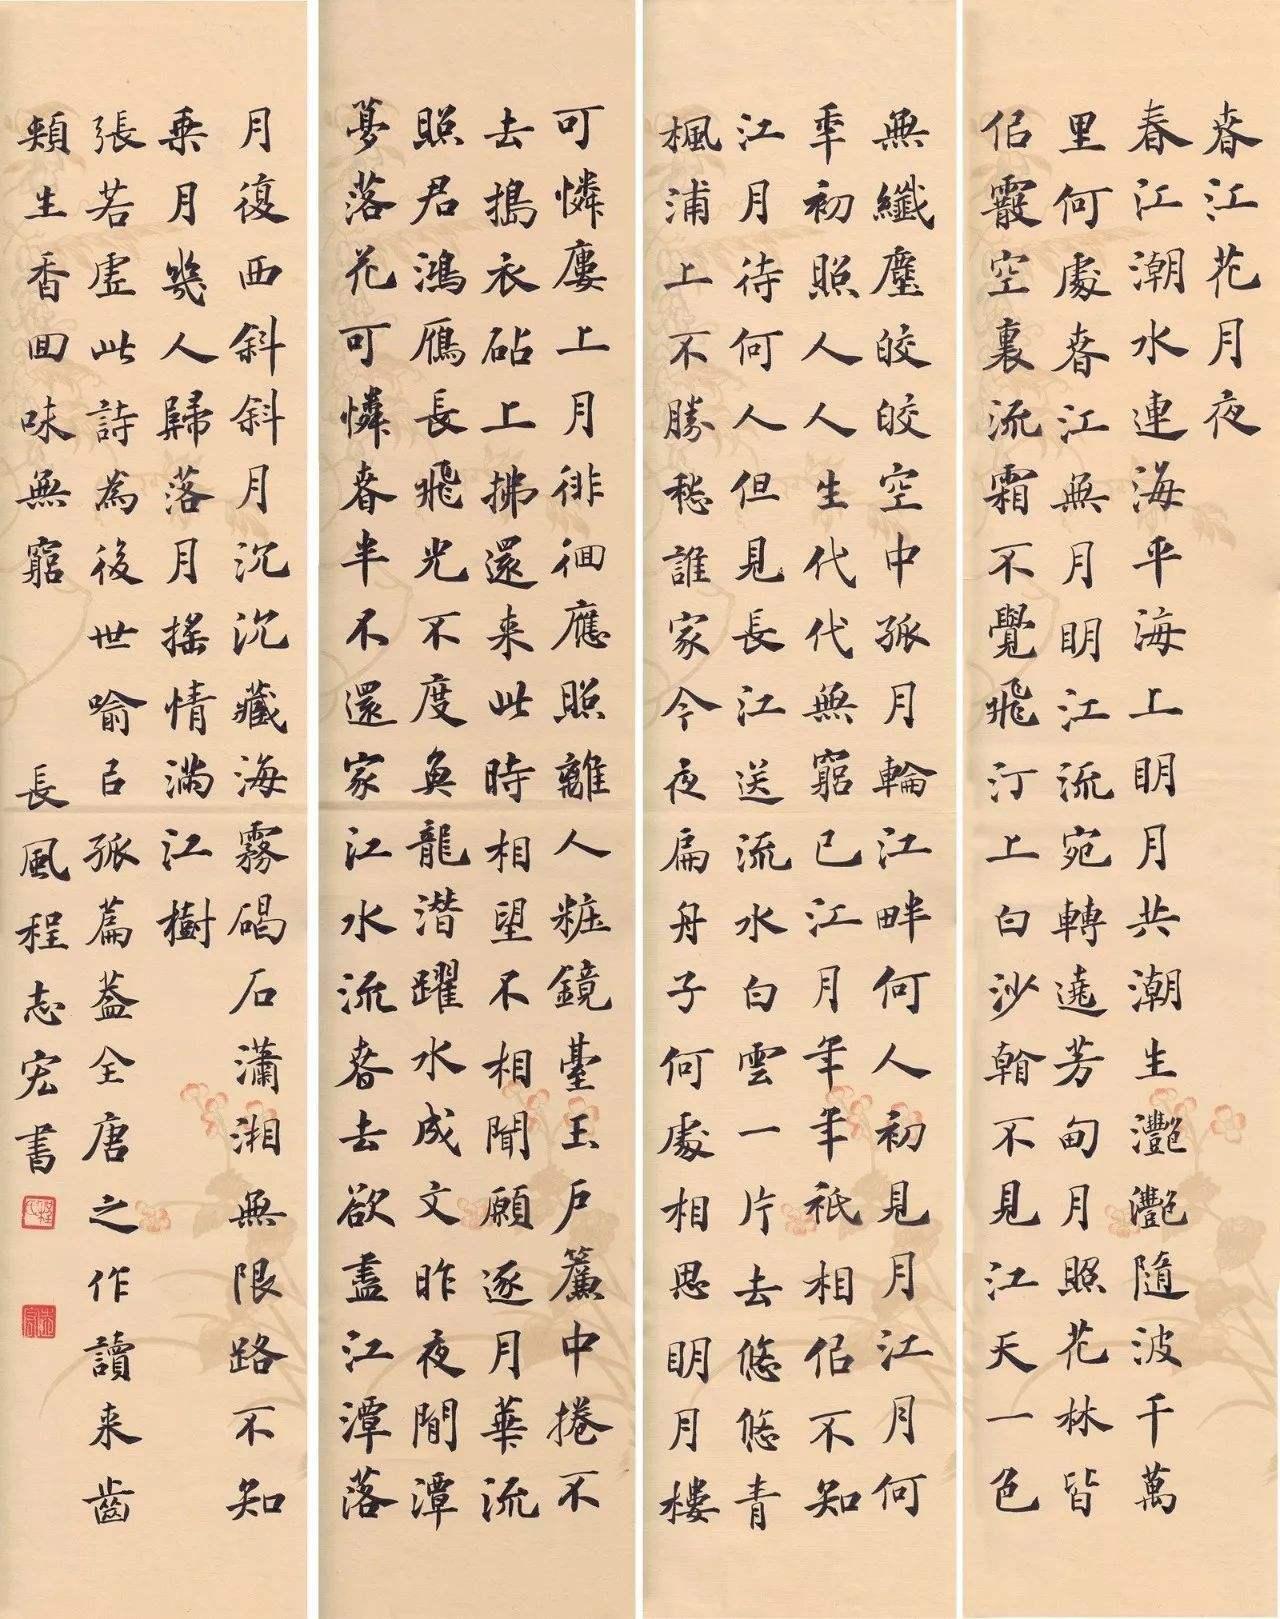 春江花月夜
春江潮水連海平海上明月共潮生灧灧隨波千萬
里何處春江無月明江流宛轉遶芳甸月照花林皆
佀霰空裏流霜不覺飛汀上白沙看不見江天一色
無纖塵皎皎空中孤月輪江畔何人初見月江月何
年初照人人生代代無窮已江月年年祗相佀不知
江月待何人但見長江送流水白雲一片去悠悠青
楓浦上不勝愁誰家今夜扁舟子何處相思明月樓
可憐廔上月徘徊應照離人粧鏡臺玉戶簾中捲不
去搗衣砧上拂還来此時相望不相聞願逐月華流
照君鴻雁長飛光不度魚龍潜躍水成文昨夜閒潭
夢落花可憐春半不還家江水流春去欲盡江潭落
月復西斜斜月沉沉藏海霧碣石瀟湘無限路不知
乗月幾人歸落月搖情滿江樹
張若虛此詩為後世喻㠯孤篇蓋全唐之作讀来齒
頰生香回味無窮 長風程志宏書